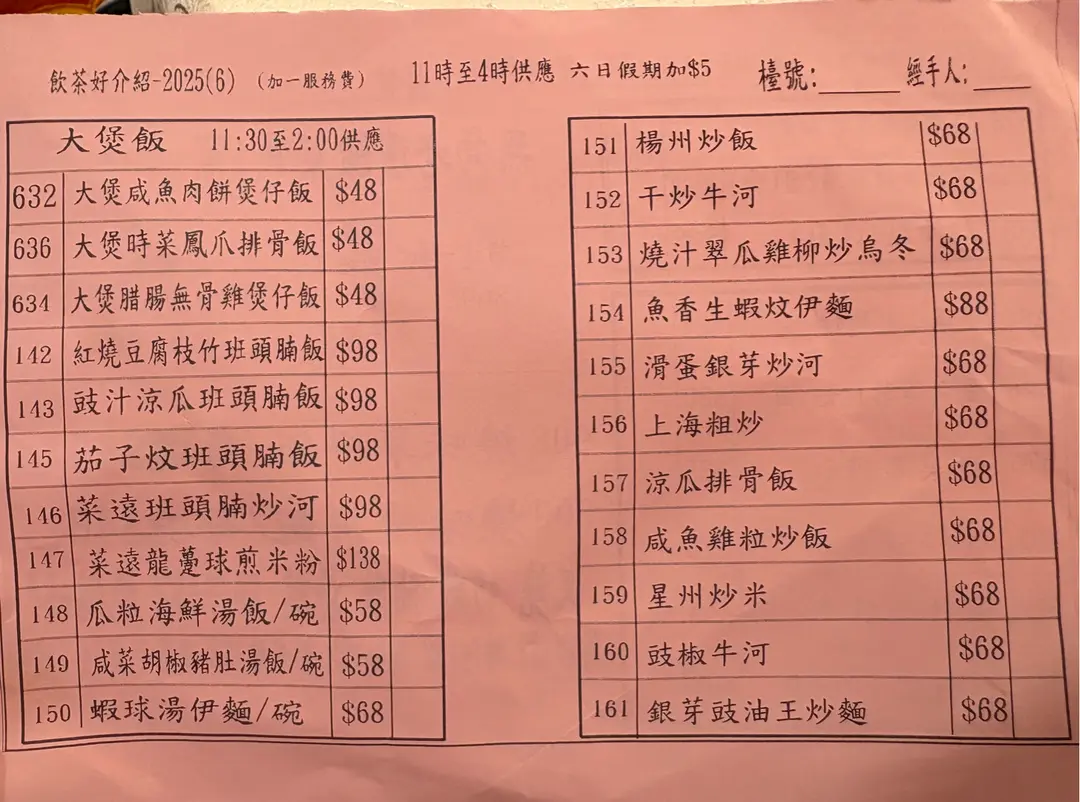 飲茶好介紹-2025(6) (加一服務費) 11時至4時供應 六日假期加$5 檯號:______ 經手人:____
大煲飯 11:30至2:00供應
632 大煲咸魚肉餅煲仔飯 $48
636 大煲時菜鳳爪排骨飯 $48
634 大煲腊腸無骨雞煲仔飯 $48
142 紅燒豆腐枝竹班頭腩飯 $98
143 豉汁涼瓜班頭腩飯 $98
145 茄子炆班頭腩飯 $98
146 菜遠班頭腩炒河 $98
147 菜遠龍躉球煎米粉 $138
148 瓜粒海鮮湯飯/碗 $58
149 咸菜胡椒豬肚湯飯/碗 $58
150 蝦球湯伊麵/碗 $68
151 楊州炒飯 $68
152 干炒牛河 $68
153 燒汁翠瓜雞柳炒烏冬 $68
154 魚香生蝦炆伊麵 $88
155 滑蛋銀芽炒河 $68
156 上海粗炒 $68
157 涼瓜排骨飯 $68
158 咸魚雞粒炒飯 $68
159 星州炒米 $68
160 豉椒牛河 $68
161 銀芽豉油王炒麵 $68